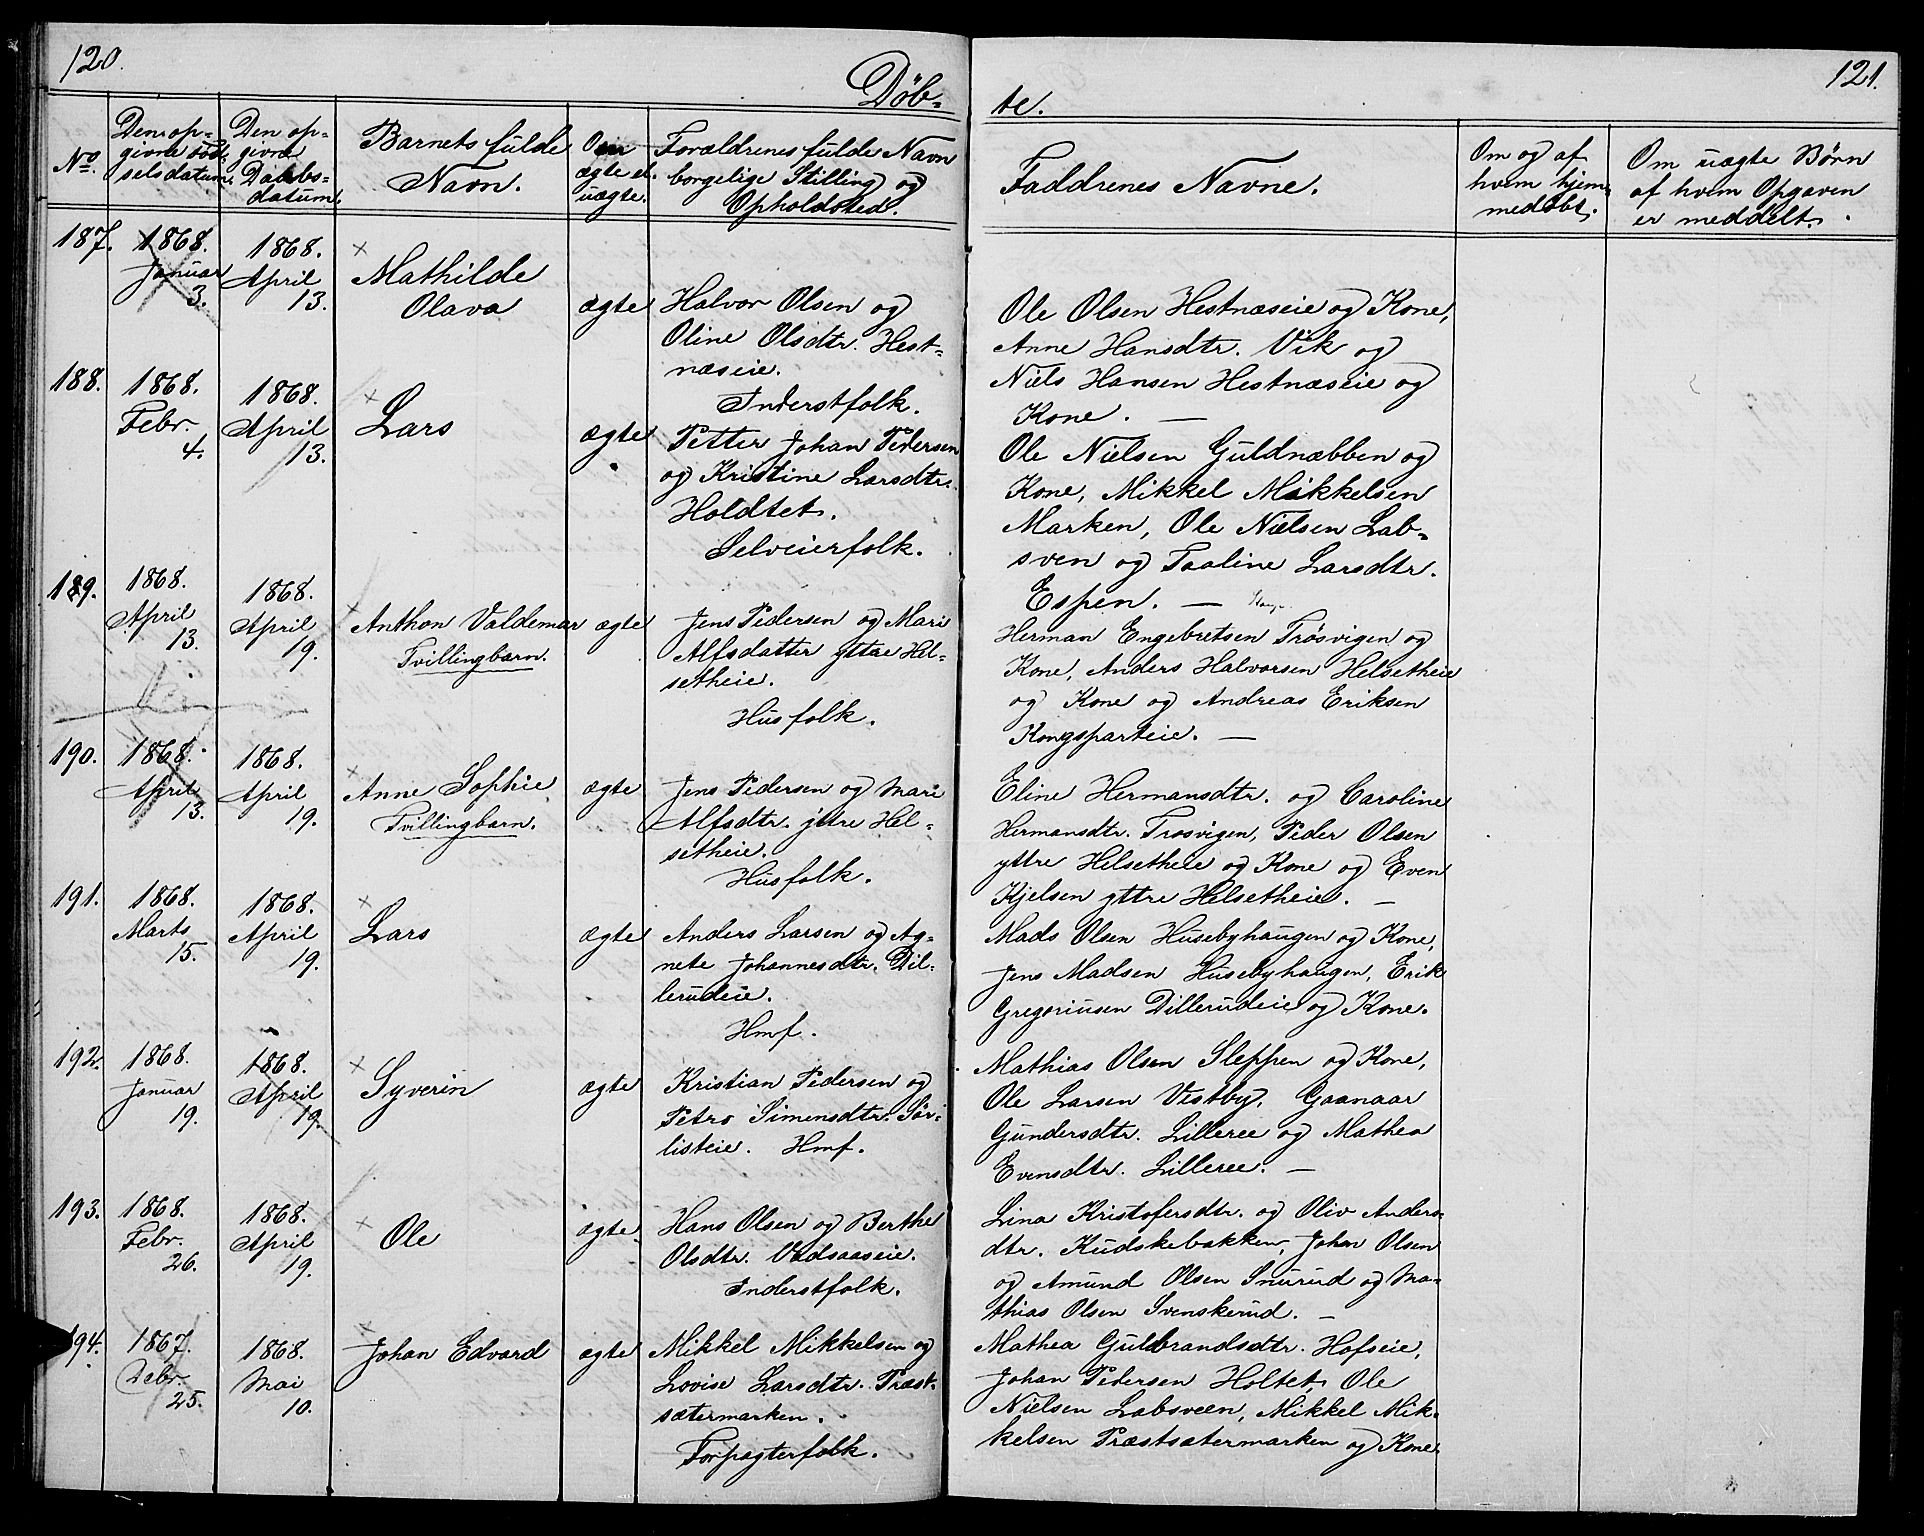 120.
Døb-
No.
Den op-
givne Fød-
selsdatum.
Den op-
givne
Daabs-
datum.
Barnets fulde
Navn.
Om
ægte el.
uægte.
Forældrenes fulde Navn
borgelige Stilling og
Opholdsted.
187.
1868.
Januar
3.
1868.
April
13.
Mathilde
Olava
ægte
Halvor Olsen og
Oline Olsdtr. Hest-
næseie.
Inderstfolk.
188.
1868.
Febr.
4.
1868.
April
13.
Lars
ægte
Petter Johan Pedersen
og Kristine Larsdtr.
Holdtet.
Selveierfolk.
189.
1868.
April
13.
1868.
April
19.
Anthon Valdemar
Tvillingbarn.
ægte
Jens Pedersen og Mari
Alfsdatter yttre Hel-
setheie.
Husfolk.
190.
1868.
April
13.
1868.
April
19.
Anne Sophie
Tvillingbarn.
ægte
Jens Pedersen og Mari
Alfsdtr. yttre Hel-
setheie.
Husfolk.
191.
1868.
Marts
15.
1868.
April
19.
Lars
ægte
Anders Larsen og Ag-
nete Johannesdtr. Dil-
lerudeie.
Hmf.
192.
1868.
Januar
19.
1868.
April
19.
Syverin
ægte
Kristian Pedersen og
Petra Simensdtr. Sør-
listeie. Hmf.
193.
1868.
Febr.
26.
1868.
April
19.
Ole
ægte
Hans Olsen og Berthe
Olsdtr. Vadsaaseie.
Inderstfolk.
194.
1867.
Debr.
25.
1868.
Mai
10.
Johan Edvard
ægte
Mikkel Mikkelsen og
Lovise Larsdtr. Præst-
sætermarken.
Forpagterfolk.
121.
te.
Faddrenes Navne.
Om og af
hvem hjem-
medøbt.
Om uægte Børn
af hvem Opgaven
er meddelt.
Ole Olsen Hestnæseie og Kone,
Anne Hansdtr. Vik og
Niels Hansen Hestnæseie og
Kone. —
Ole Nielsen Guldnæbben og
Kone, Mikkel Mikkelsen
Marken, Ole Nielsen Lab-
sven og Paaline Larsdtr.
Espen. —
Herman Engebretsen Trøsvigen og
Kone, Anders Halvorsen Helsetheie
og Kone og Andreas Eriksen
Kongsparteie. —
Eline Hermansdtr. og Caroline
Hermansdtr. Trosvigen, Peder Olsen
yttre Helsetheie og Kone og Even
Kjelsen yttre Helsetheie. —
Mads Olsen Husebyhaugen og Kone,
Jens Madsen Husebyhaugen, Erik
Gregoriusen Dillerudeie og Kone.
Mathias Olsen Sleppen og Kone,
Ole Larsen Vestby, Gaanaar
Gundersdtr. Lilleree og Mathea
Evensdtr. Lilleree. —
Lina Kristofersdtr. og Oliv Anders-
dtr. Kudskebakken, Johan Olsen
og Amund Olsen Snurud og Ma-
thias Olsen Svenskerud. —
Mathea Gulbrandsdtr. Hofseie,
Johan Pedersen Holtet, Ole
Nielsen Labsveen, Mikkel Mik-
kelsen Præstsætermarken og Kone.